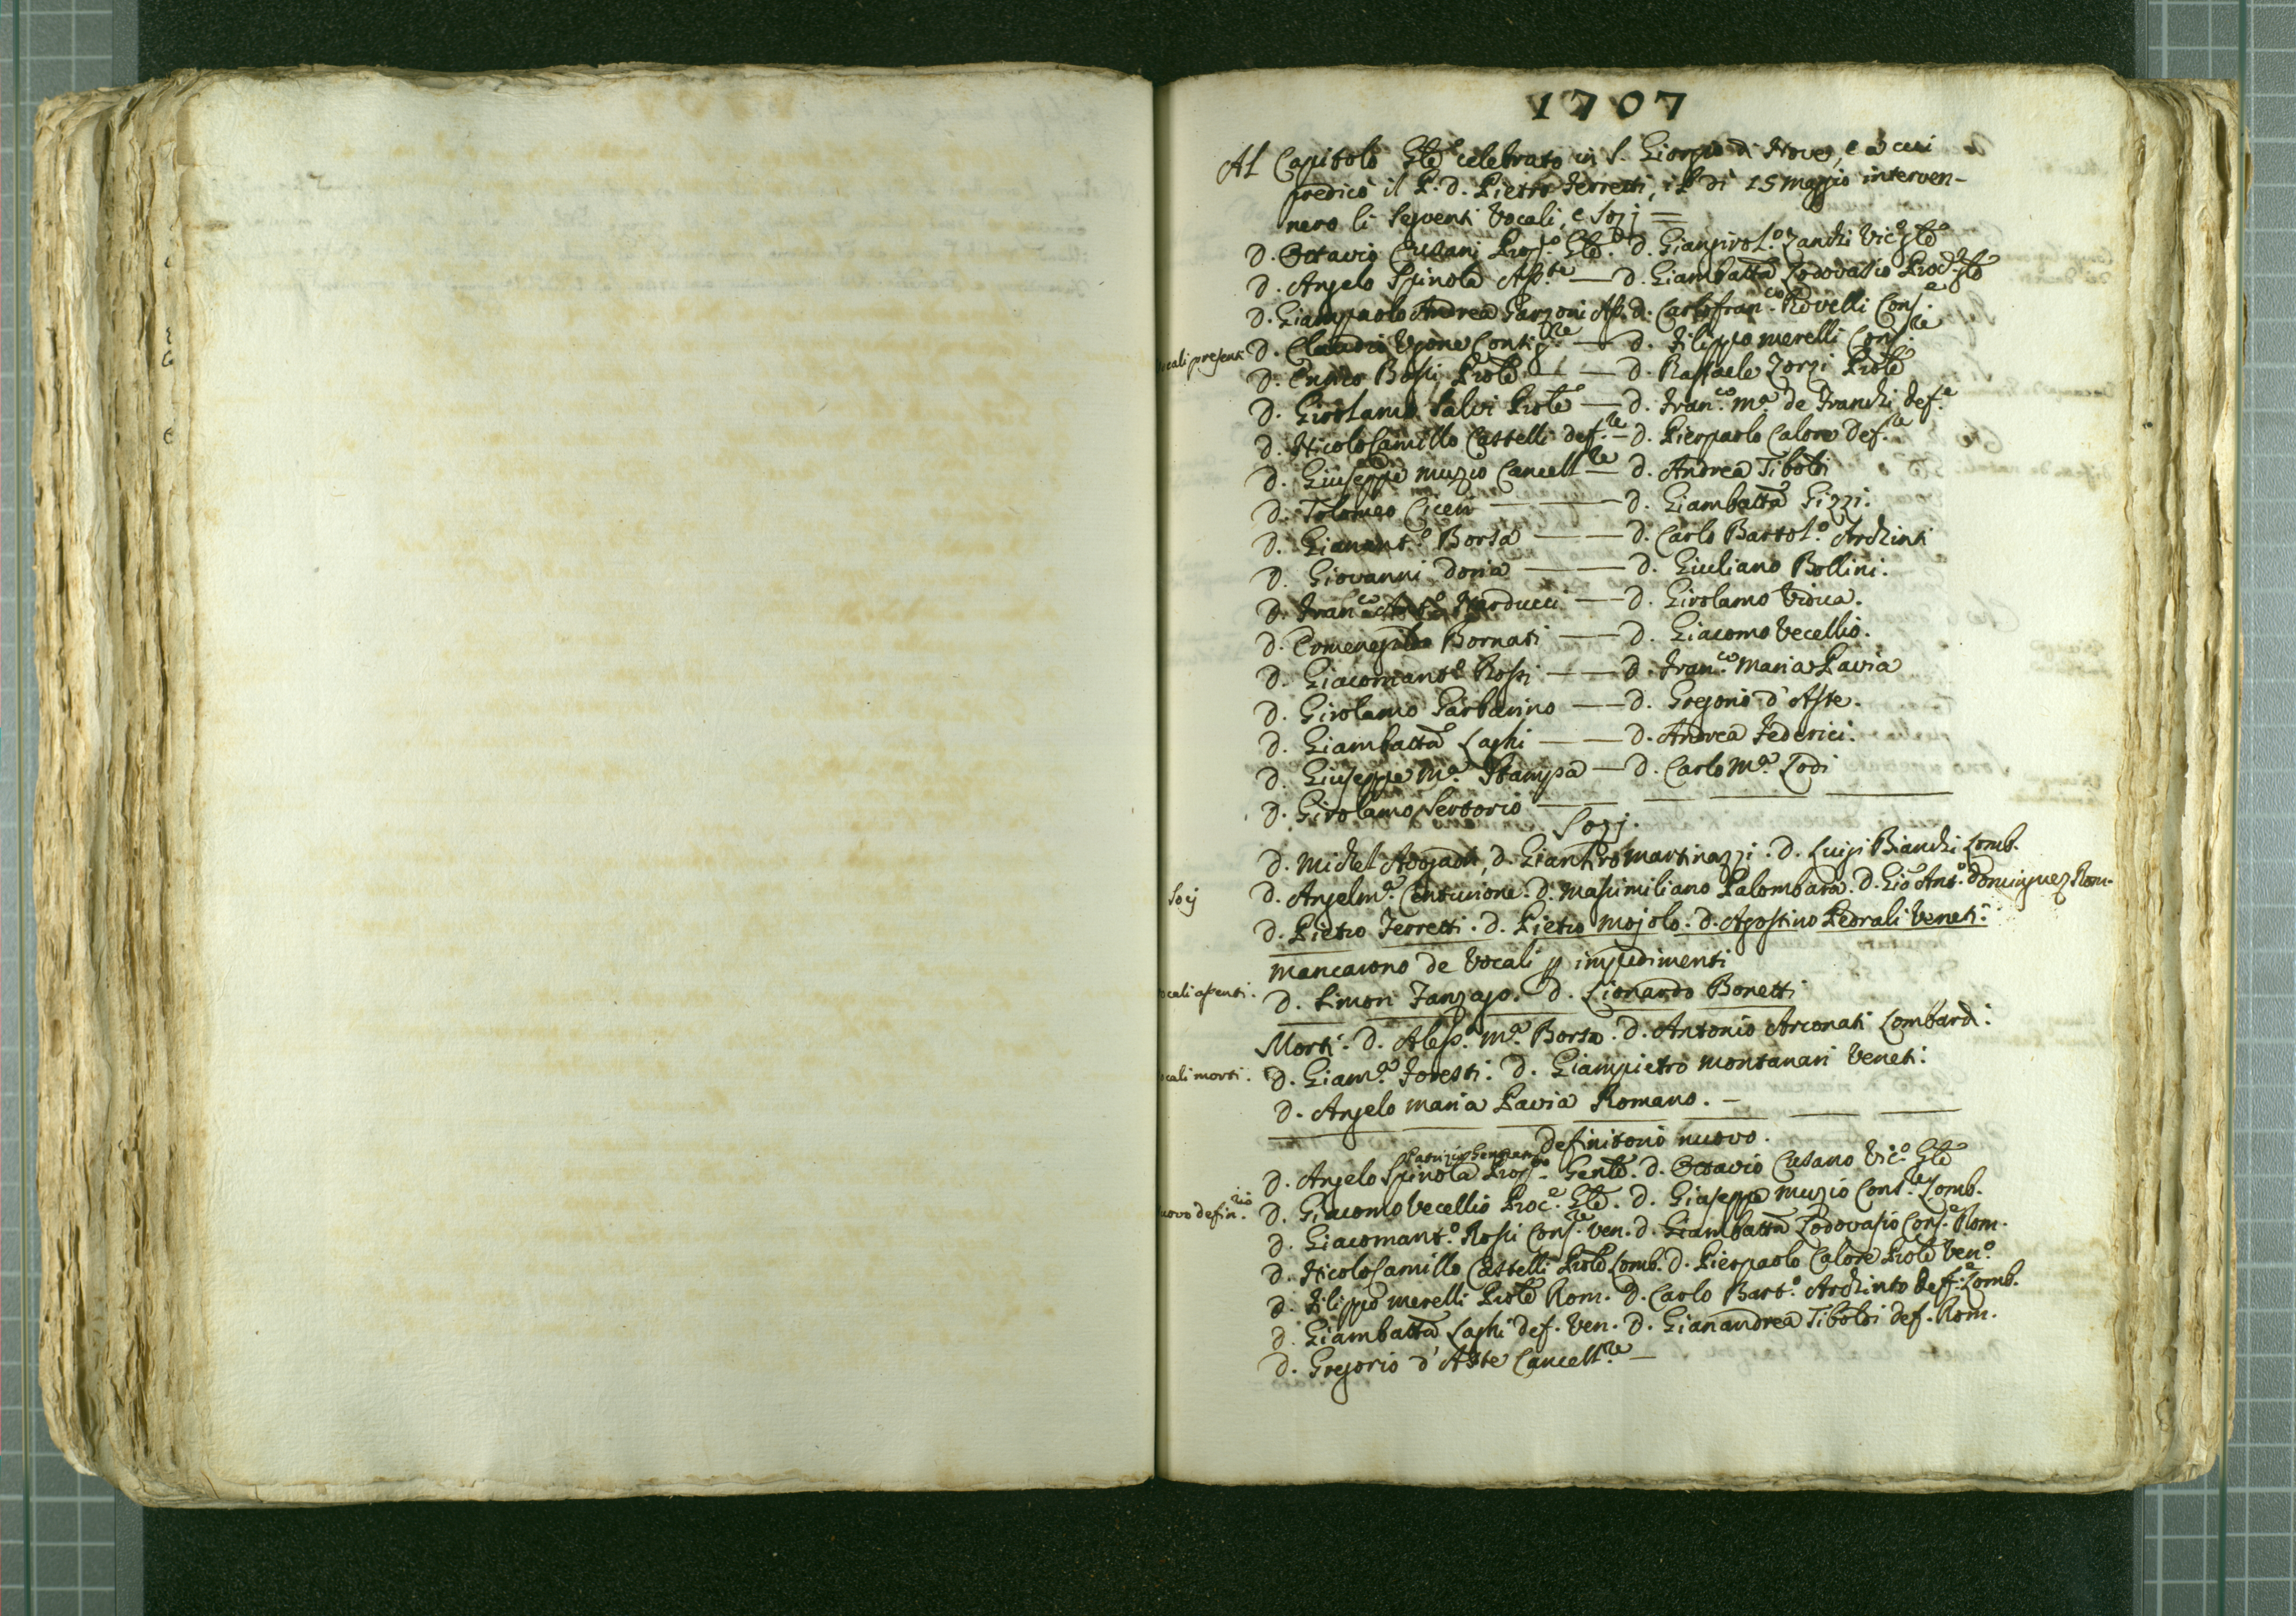 1707
Al Capitolo Gñle celebrato in S. Giorgio di Nove, e à cui
predicò il P. D. Pietro Ferretti, il dì 15 Maggio interven-
nero li seguenti Vocali, e Sozj =
D. Ottavio Cusani Prop.to Gñle. D. Giangirol.o Zanchi Vic.o Gñle
D. Angelo Spinola Ass.te — D. Giambatta Lodovasio Proc.e Gñle
D. Giampaolo Andrea Garzoni Ass. D. Carlofran.co Rovelli Cons.e
vocali presenti D. Claudio Ugone Contig.re — D. Filippo Merelli Cons.re
D. Enrico Bossi Prõle — D. Raffaele Zorzi Prõle
D. Girolamo Salvi Prõle — D. Fran.co M.a de Franchi Def.e
D. Nicolò Camillo Castelli Def.re — D. Pierpaolo Calore Def.re
D. Giuseppe Muzio Cancell.re — D. Andrea Tiboldi
D. Tolomeo Ciceri — D. Giambatta Gizzi.
D. Gianant.o Borsa — D. Carlo Bartol.o Archinti
D. Giovanni Doria — D. Giuliano Bollini.
D. Fran.co Narducci — D. Girolamo Vidua.
D. Ermenegildo Bornati — D. Giacomo Vecellio.
D. Giacomant.o Rossi — D. Fran.co Maria Pavia
D. Girolamo Garbarino — D. Gregorio d'Aste.
D. Giambatta Laghi — D. Andrea Federici.
D. Giuseppe M.a Stampa — D. Carlo M.a Lodi
D. Girolamo Sertorio —
Sozj.
D. Michel Adogadri, D. Gianpro Martinazzi. D. Luigi Bianchi Lomb.
Socij D. Angelm.a Centurione. D. Massimiliano Palombara. D. Gio Ant.o Dominguez Rom.
D. Pietro Ferretti. D. Pietro Mojolo. D. Agostino Pedrali Veneti.
Mancarono de Vocali p impedimenti
vocali assenti. D. Simon Fanzago. D. Lionardo Bonetti
Morti. D. Aless. M.a Borsa. D. Antonio Arconati Lombardi.
vocali morti. D. Giam.a Foresti. D. Giampietro Montanari Veneti.
D. Angelo Maria Pavia Romano. —
Definitorio nuovo.
Patrizio Genovese
D. Angelo Spinola Prop.to Genle. D. Ottavio Cusano Vic.o Gñle
nuovo defin.rio D. Giacomo Vecellio Proc.e Gñle. D. Giuseppe Muzio Cons.re Lomb.
D. Giacomant.o Rossi Cons.re Ven. D. Giambatta Lodovasio Cons.e Rom.
D. Nicolò Camillo Castelli Prõle Lomb. D. Pierpaolo Calore Prõle Ven.o
D. Filippo Merelli Prõle Rom. D. Carlo Bart.o Archinto Def.e Lomb.
D. Giambatta Laghi Def. Ven. D. Gianandrea Tiboldi Def. Rom.
D. Gregorio d'Aste Cancell.re —